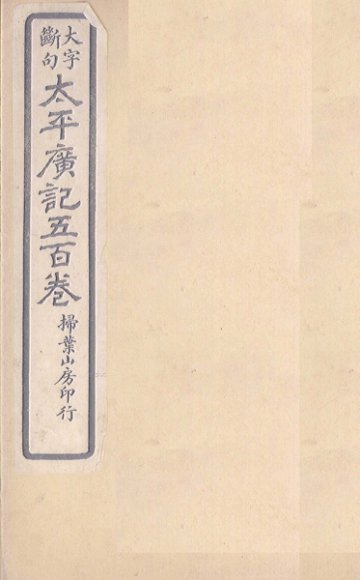 大字
斷句
太平廣記五百卷
掃葉山房印行